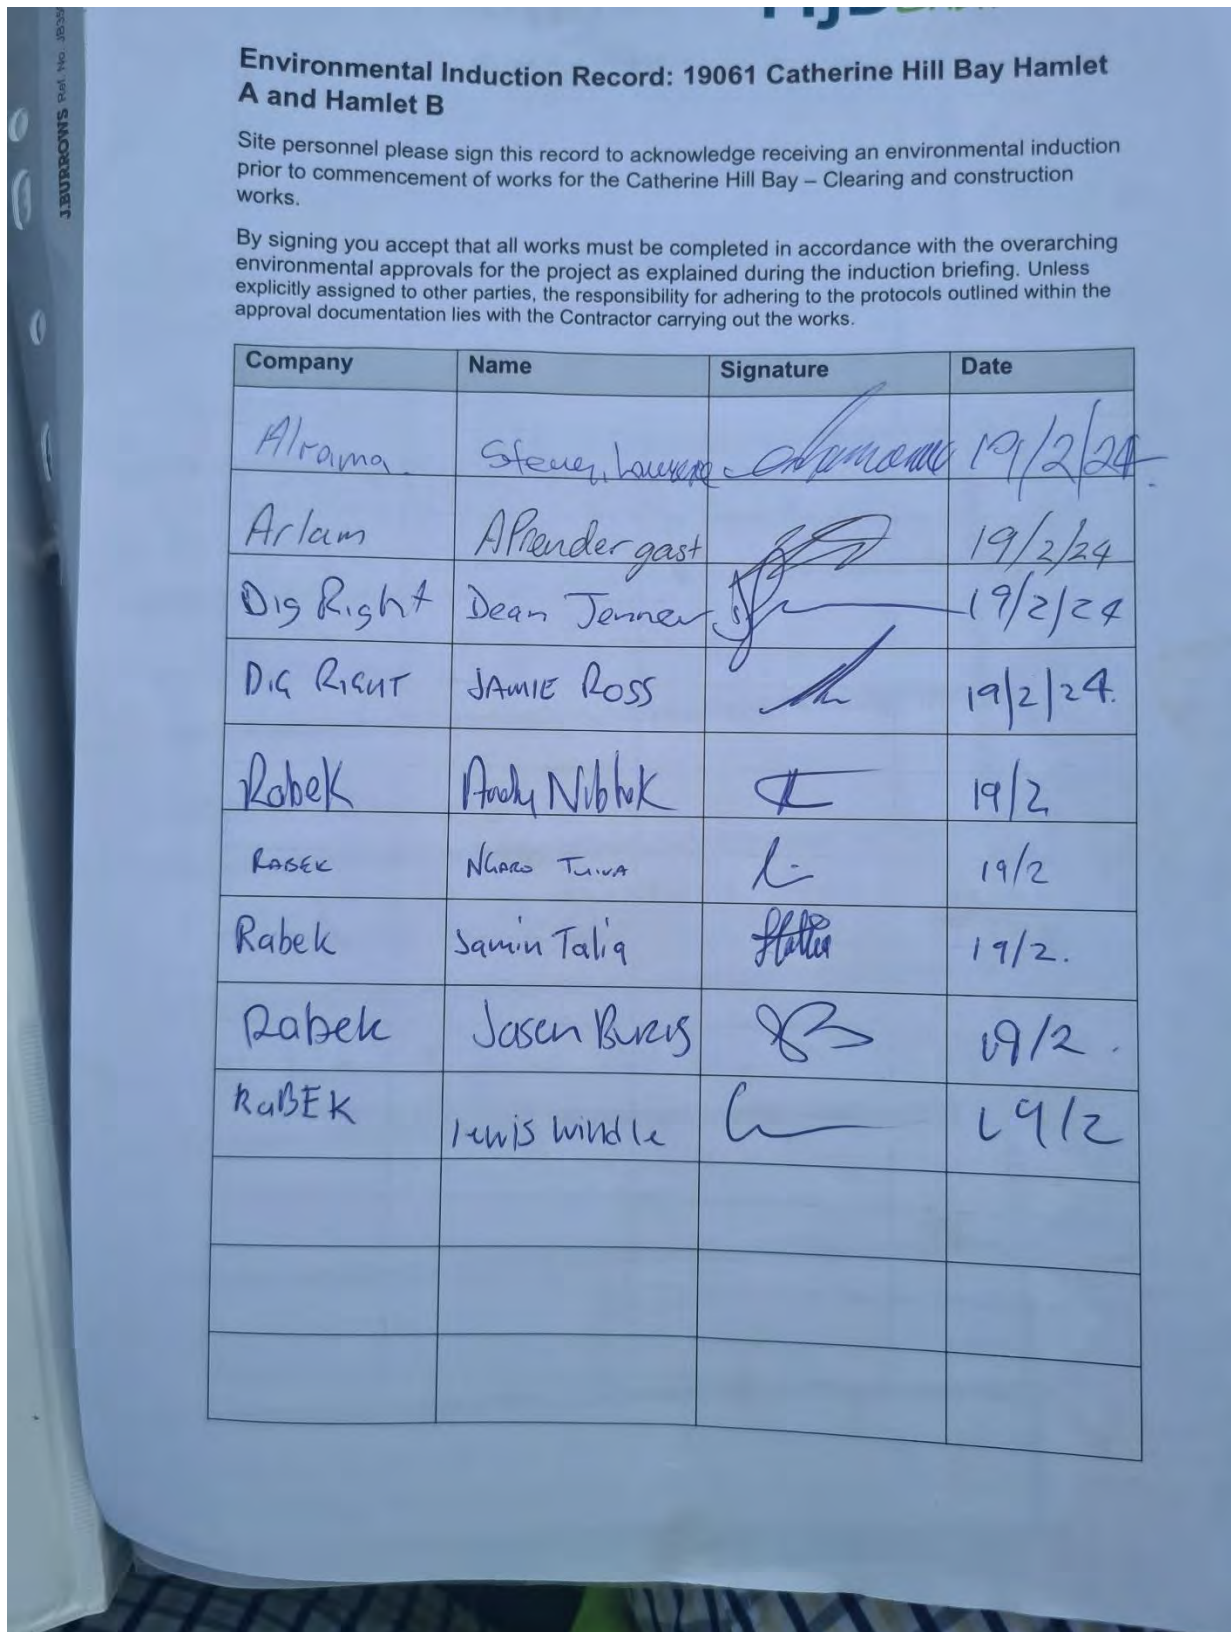 J.BURROWS Ref. No. JB35
Environmental Induction Record: 19061 Catherine Hill Bay Hamlet
A and Hamlet B
Site personnel please sign this record to acknowledge receiving an environmental induction
prior to commencement of works for the Catherine Hill Bay – Clearing and construction
works.
By signing you accept that all works must be completed in accordance with the overarching
environmental approvals for the project as explained during the induction briefing. Unless
explicitly assigned to other parties, the responsibility for adhering to the protocols outlined within the
approval documentation lies with the Contractor carrying out the works.
Company Name Signature Date
19/2/24
Arlam APrendergast 19/2/24
Dig Right Dean Jenner 19/2/24
DIG RIGHT JAMIE ROSS 19/2/24.
Robek Andy 19/2
RABEK NGARO 19/2
Rabek Jamin Talia 19/2.
Rabek Jasen 19/2.
RaBEK lewis windle 19/2